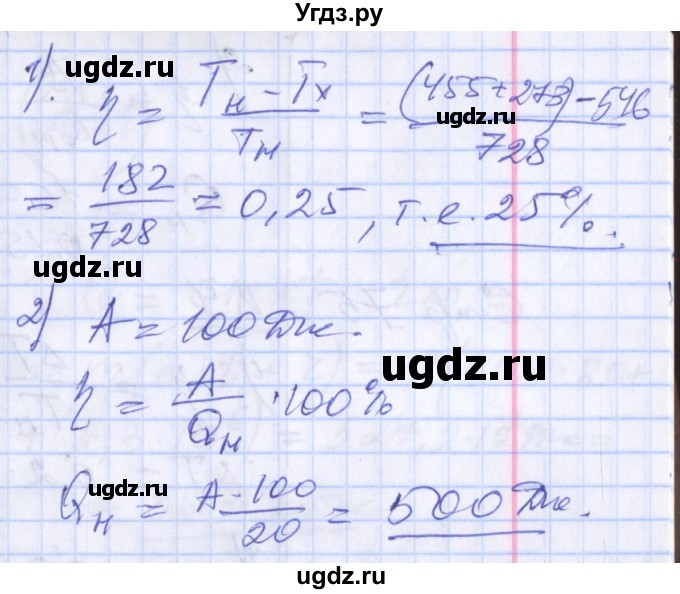 Угдз.ру
ugdz.ru
1). η = (Tн - Tх)/Tн = ((455+273) - 546)/728
ugdz.ru
= 182/728 = 0,25, т.е. 25%.
ugdz.ru
ugdz.ru
2) A = 100 Дж.
ugdz.ru
η = A/Qн · 100%
ugdz.ru
Qн = A · 100/20 = 500 Дж.
ugdz.ru
ugdz.ru